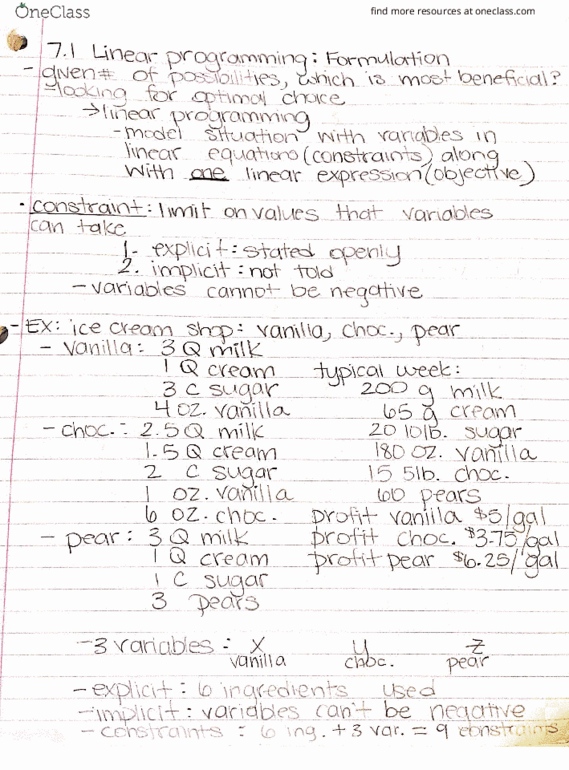 OneClass
find more resources at oneclass.com
7.1 Linear programming: Formulation
- given # of possibilities, which is most beneficial?
- looking for optimal choice
→ linear programming
- model situation with variables in
linear equations (constraints) along
with one linear expression (objective)
• constraint: limit on values that variables
can take
1. explicit: stated openly
2. implicit: not told
- variables cannot be negative
- EX: ice cream shop: vanilla, choc., pear
- vanilla: 3 Q milk
1 Q cream typical week:
3 C sugar 200 g milk
4 oz. vanilla 65 g cream
- choc.: 2.5 Q milk 20 10lb. sugar
1.5 Q cream 180 oz. vanilla
2 C sugar 15 5lb. choc.
1 oz. vanilla 60 pears
6 oz. choc. profit vanilla $5/gal
- pear: 3 Q milk profit choc. $3.75/gal
1 Q cream profit pear $6.25/gal
1 C sugar
3 pears
- 3 variables: x y z
vanilla choc. pear
- explicit: 6 ingredients used
- implicit: variables can't be negative
- constraints: 6 ing. + 3 var. = 9 constraints